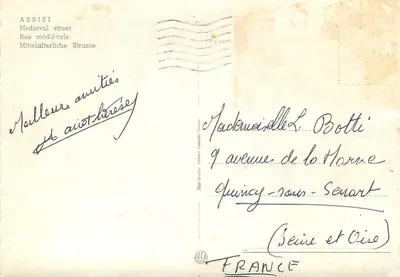 ASSISI
Medieval street
Rue médiévale
Mittelalterliche Strasse
Meilleures amitiés
Mademoiselle L. Botti
9 avenue de la Marne
Quincy-sous-Senart
(Seine et Oise)
FRANCE